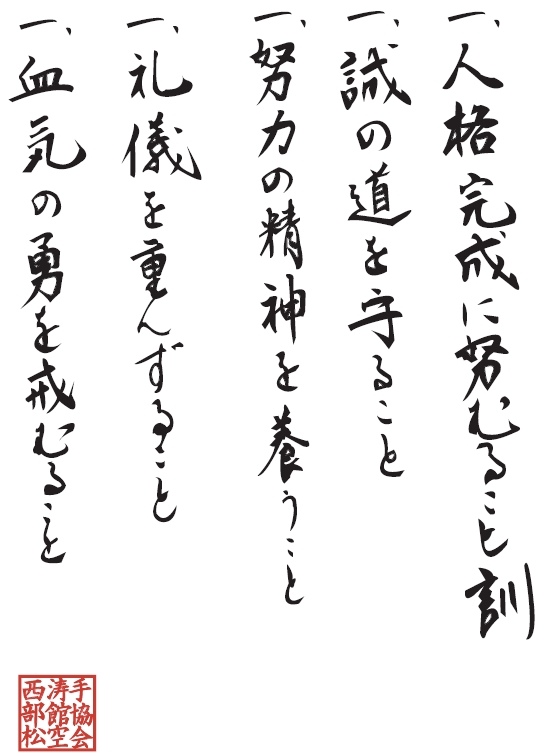 一、人格完成に努むること 訓
一、誠の道を守ること
一、努力の精神を養うこと
一、礼儀を重んずること
一、血気の勇を戒むること
西部松
涛館空
手協会